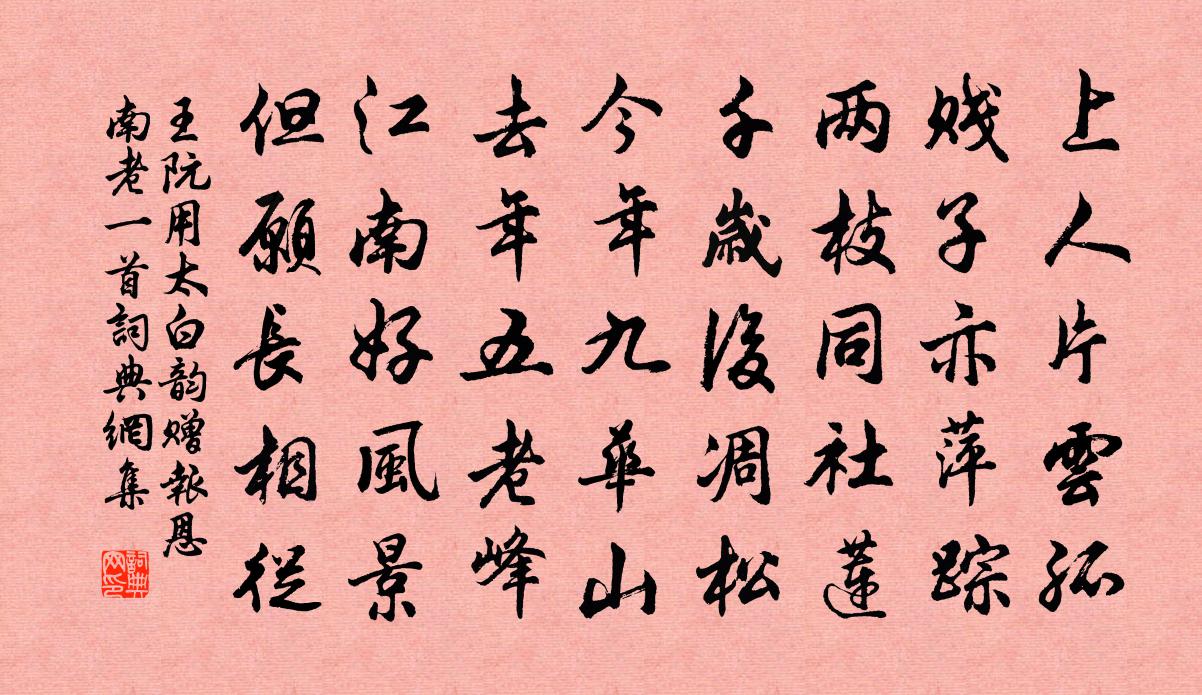 上人片雲孤
贱子亦萍踪
两枝同社蓮
千歲後凋松
今年九華山
去年五老峰
江南好風景
但願長相從
王阮用太白韵赠報恩
南老一首詞典網集
詞典網印